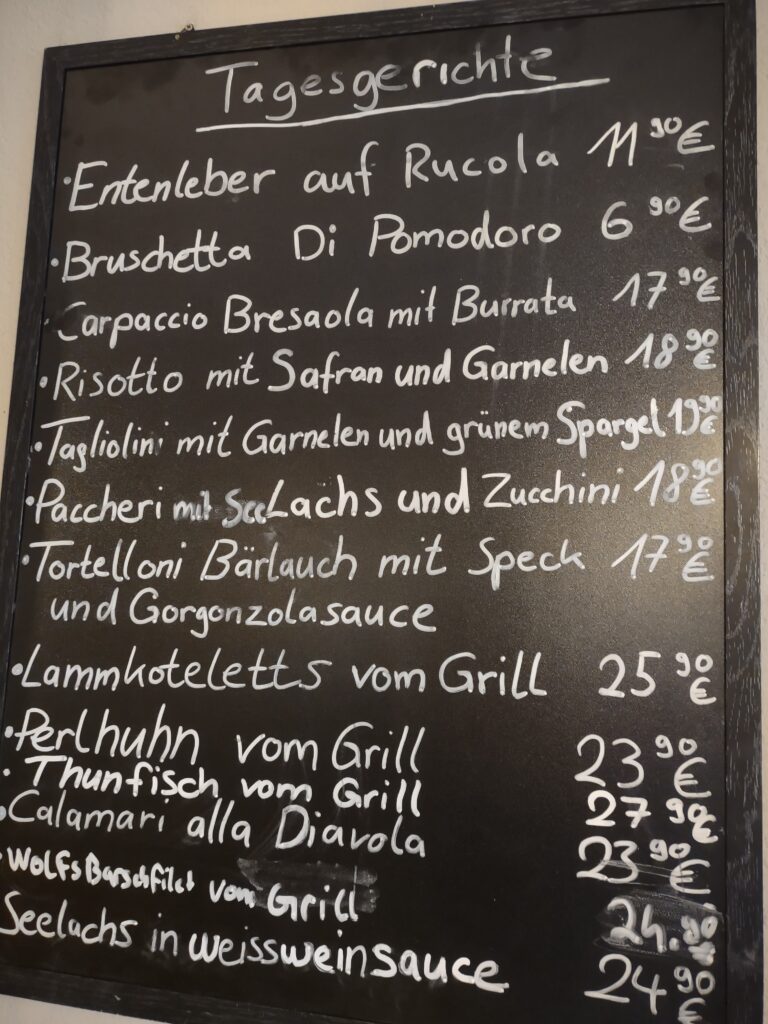 Tagesgerichte
• Entenleber auf Rucola 11 90 €
• Bruschetta Di Pomodoro 6 90 €
Carpaccio Bresaola mit Burrata 17 90 €
• Risotto mit Safran und Garnelen 18 90 €
• Tagliolini mit Garnelen und grünem Spargel 19 90 €
• Paccheri mit SeeLachs und Zucchini 18 90 €
• Tortelloni Bärlauch mit Speck 17 90 €
und Gorgonzolasauce
• Lammkoteletts vom Grill 25 90 €
• Perlhuhn vom Grill 23 90 €
• Thunfisch vom Grill 27 90 €
• Calamari alla Diavola 23 90 €
• WolfsBarschfilet vom Grill 24.90
Seelachs in weissweinsauce 24 90 €